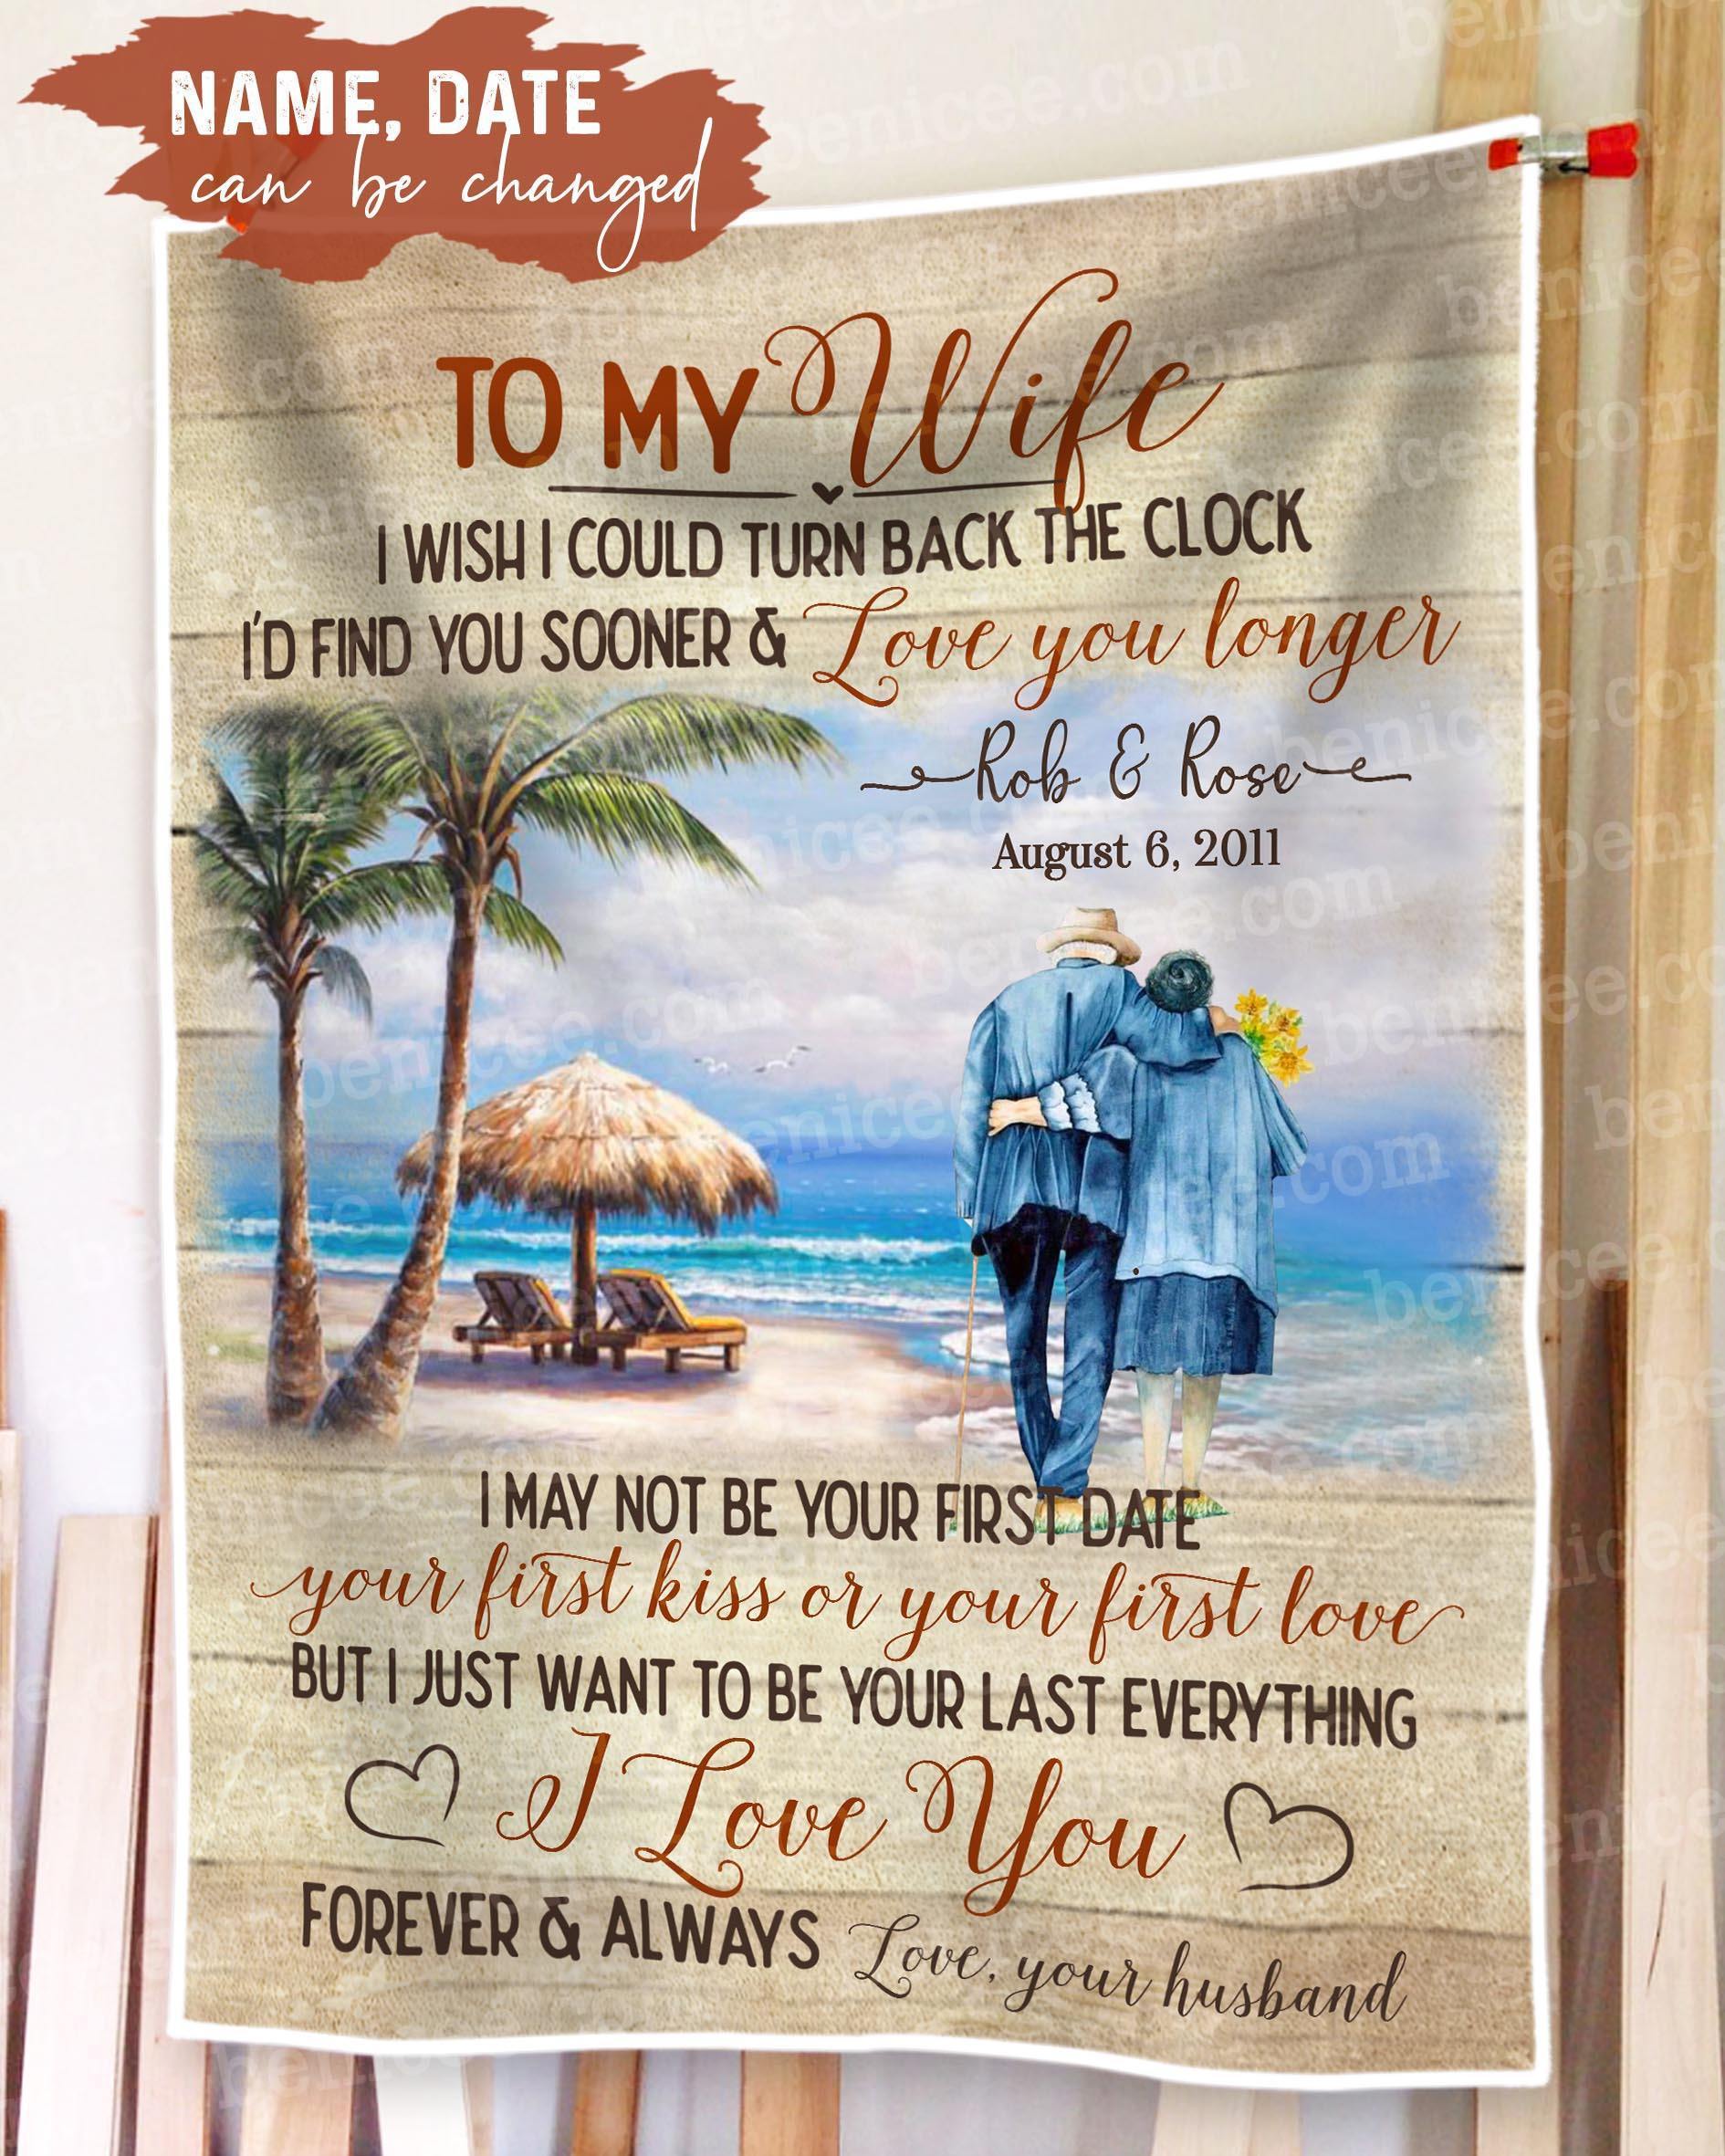 NAME, DATE
can be changed
TO MY Wife
I WISH I COULD TURN BACK THE CLOCK
I'D FIND YOU SOONER & Love you longer
Rob & Rose
August 6, 2011
I MAY NOT BE YOUR FIRST DATE
your first kiss or your first love
BUT I JUST WANT TO BE YOUR LAST EVERYTHING
I Love You
FOREVER & ALWAYS Love, your husband
benicee.com